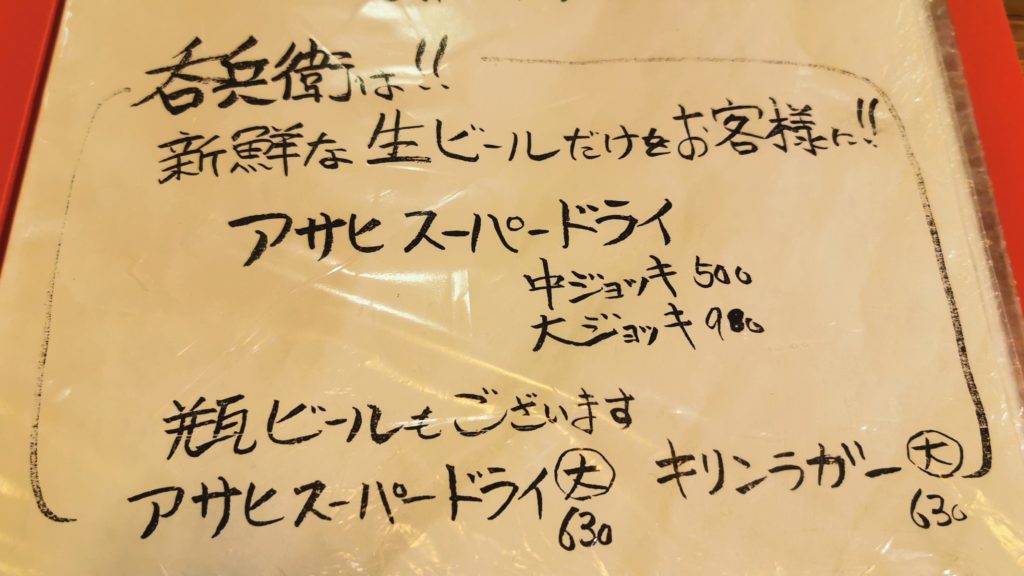 呑兵衛は!!
新鮮な生ビールだけをお客様に!!
アサヒ スーパードライ
中ジョッキ 500
大ジョッキ 980
瓶ビールもございます
アサヒスーパードライ㊛大 630 キリンラガー大 630